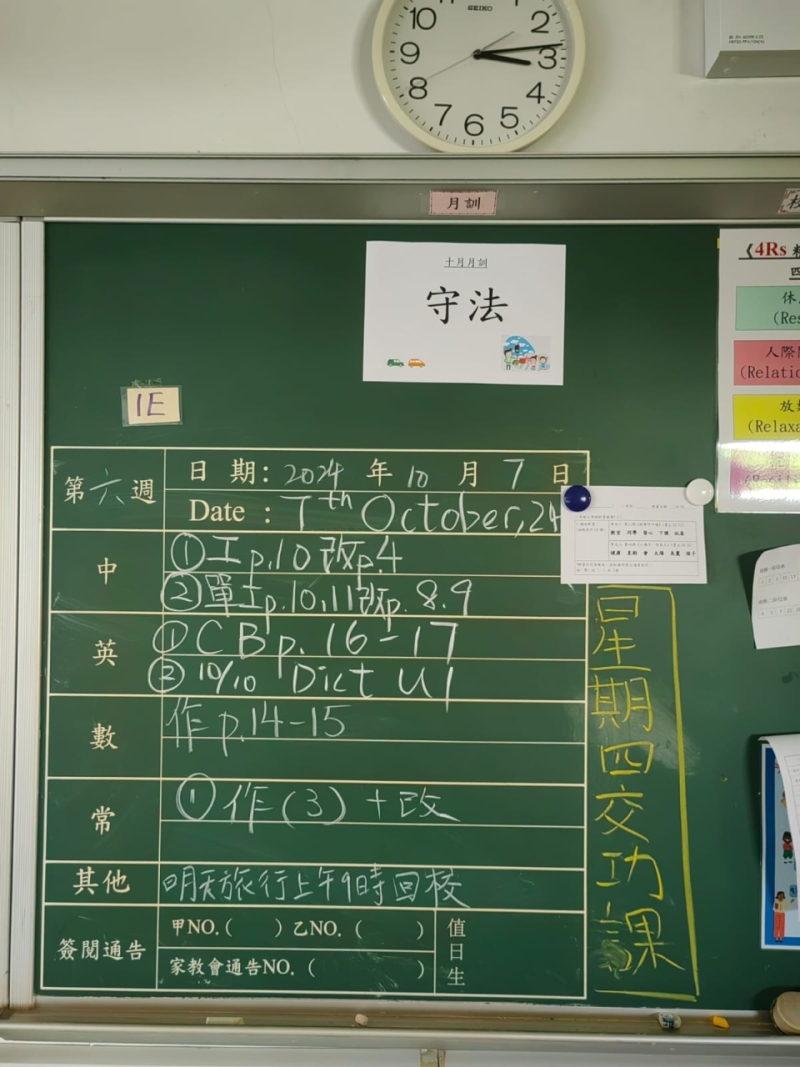 SEIKO
10 2
9 3
8 4
7 6 5
月訓
十月月訓
守法
1E
《4Rs
四
休
(Res
人際
(Relatio
放
(Relaxa
第六週
日 期: 2024 年 10 月 7 日
Date : 7th October, 24
中
①工p.10改p.4
②單工p.10,11改p.8,9
英
①CB p. 16-17
② 10/10 Dict U1
數
作p.14-15
常
①作(3)+改
其他
明天旅行上午9時回校
簽閱通告
甲NO.( ) 乙NO. ( )
家教會通告NO. ( )
值日生
星期四交功課